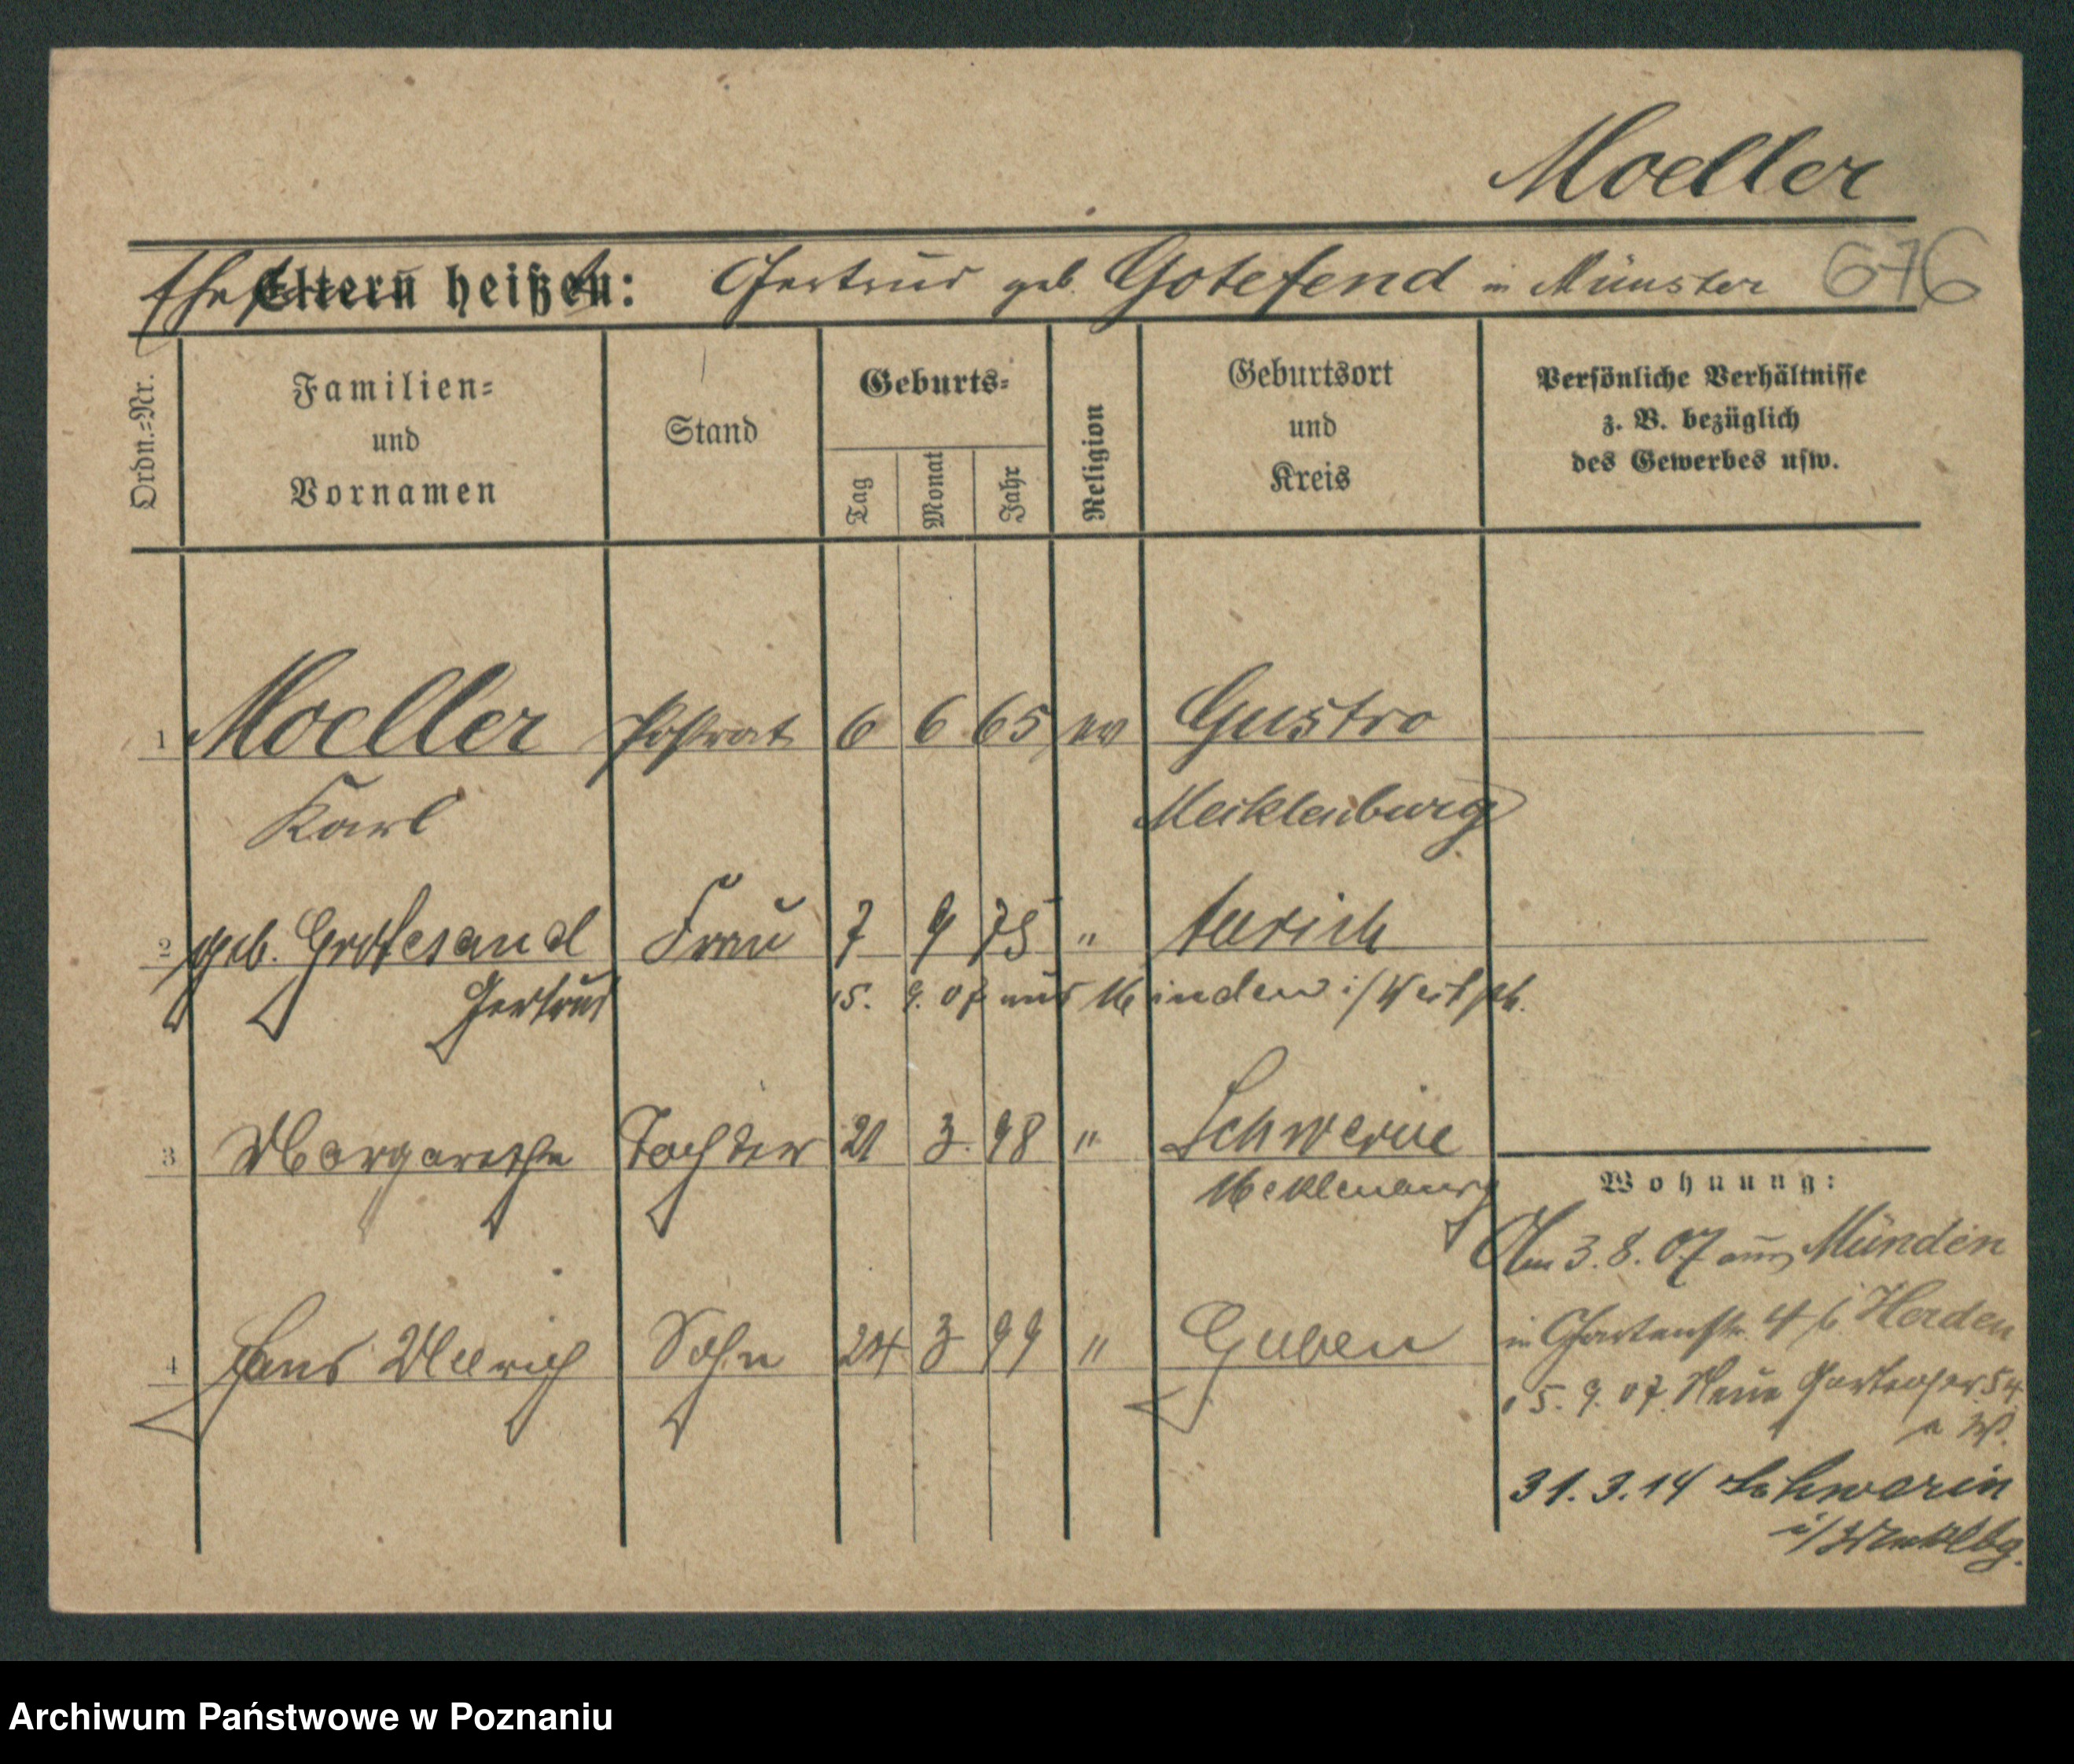 Moeller
Ehefrau Eltern heißt: Gertrud geb. Gotefend in Münster 676
Ordn.=Nr.
Familien=
und
Vornamen
Stand
Geburts=
Tag
Monat
Jahr
Religion
Geburtsort
und
Kreis
Persönliche Verhältnisse
z. B. bezüglich
des Gewerbes usw.
1 Moeller Postrat 6 6 65 ev Gustro
Karl Mecklenburg
2 geb. Grotesand Frau 7 9 75 " Aurich
Gertrud 15. 9. 07 aus Minden i/Westph.
3 Margarethe Tochter 21 3 98 " Schwerin
Mecklenburg
4 Hans Ullrich Sohn 24 3 99 " Guben
Wohnung:
Am 3. 8. 07 aus Münden
in Gartenstr. 4 b. Herden
15. 9. 07 Neue Gartenstr. 54
31. 3. 14 Schwerin
i/Mecklbg.
Archiwum Państwowe w Poznaniu